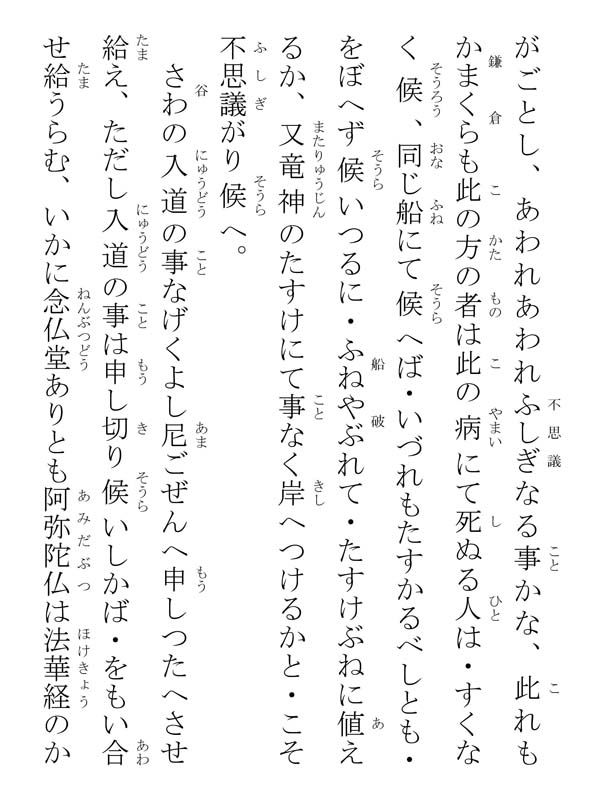 がごとし、あわれあわれふしぎなる事かな、此れも
かまくらも此の方の者は此の病にて死ぬる人は・すくな
く候、同じ船にて候へば・いづれもたすかるべしとも・
をぼへず候いつるに・ふねやぶれて・たすけぶねに値え
るか、又竜神のたすけにて事なく岸へつけるかと・こそ
不思議がり候へ。
さわの入道の事なげくよし尼ごぜんへ申しつたへさせ
給え、ただし入道の事は申し切り候いしかば・をもい合
せ給うらむ、いかに念仏堂ありとも阿弥陀仏は法華経のか